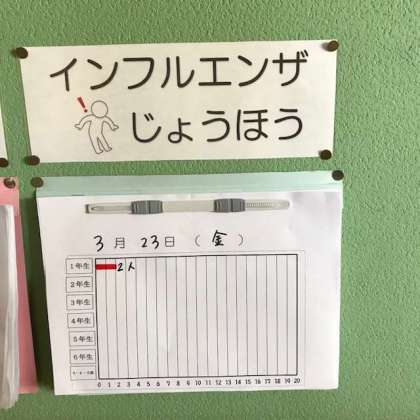 インフルエンザ
!
じょうほう
3月23日(金)
1年生 2人
2年生
3年生
4年生
5年生
6年生
0 1 2 3 4 5 6 7 8 9 10 11 12 13 14 15 16 17 18 19 20